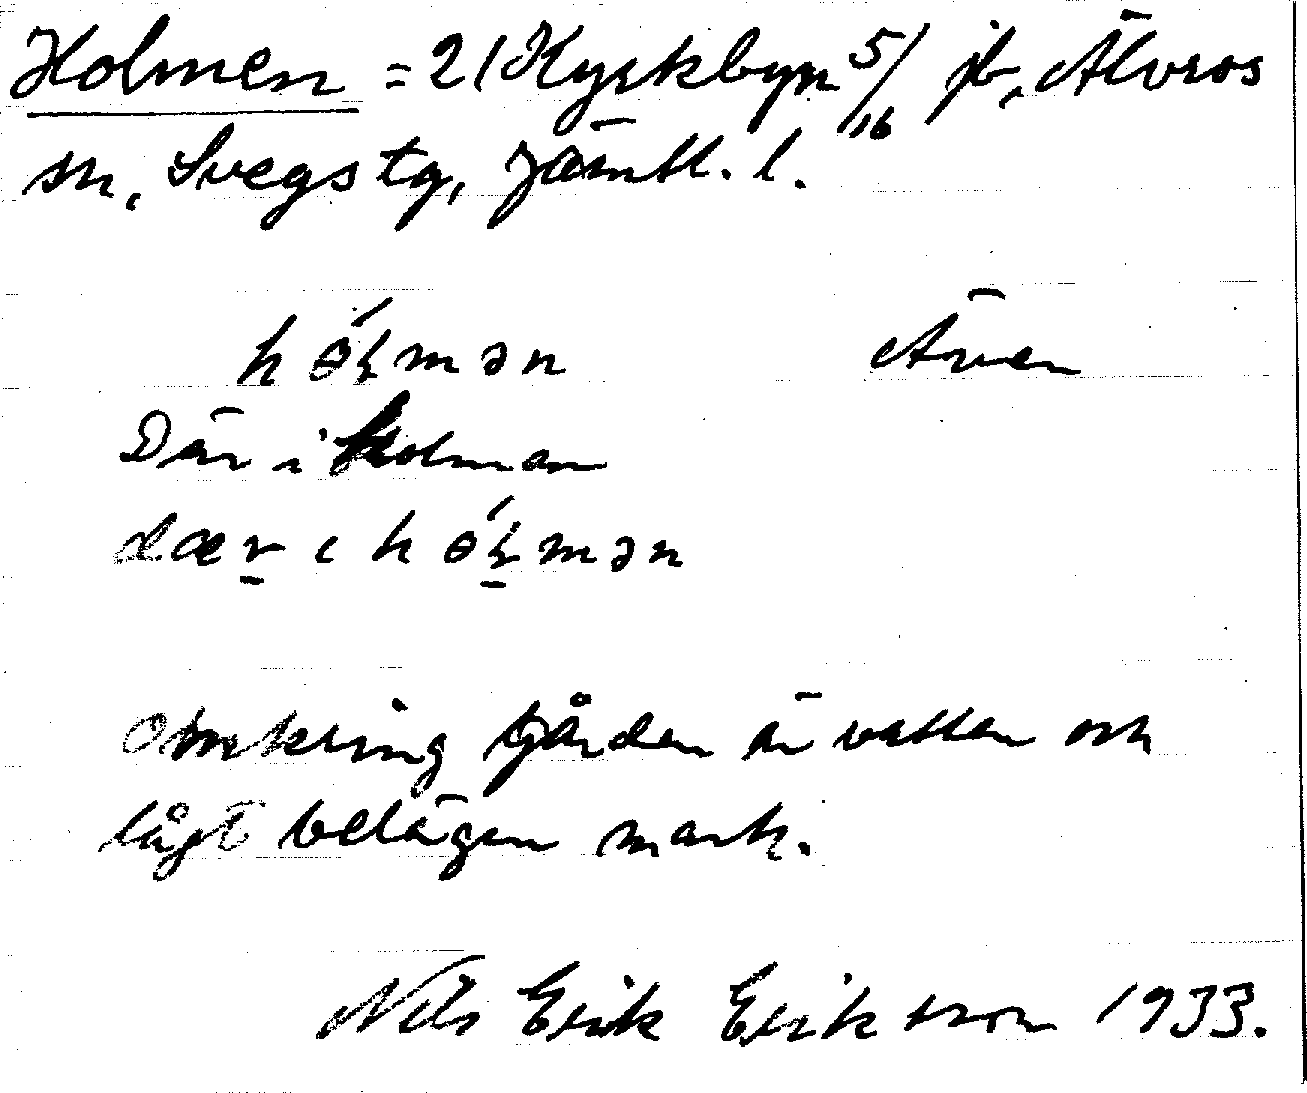 Holmen = 21 Kyrkbyn 5/16 jb, Älvros
sn, Svegs tg, Jämtl. l.
hóɫmən Även
Där i Holman
dær i hóɫmən
Omkring gården är vatten och
lågt belägen mark.
Nils Erik Eriksson 1933.